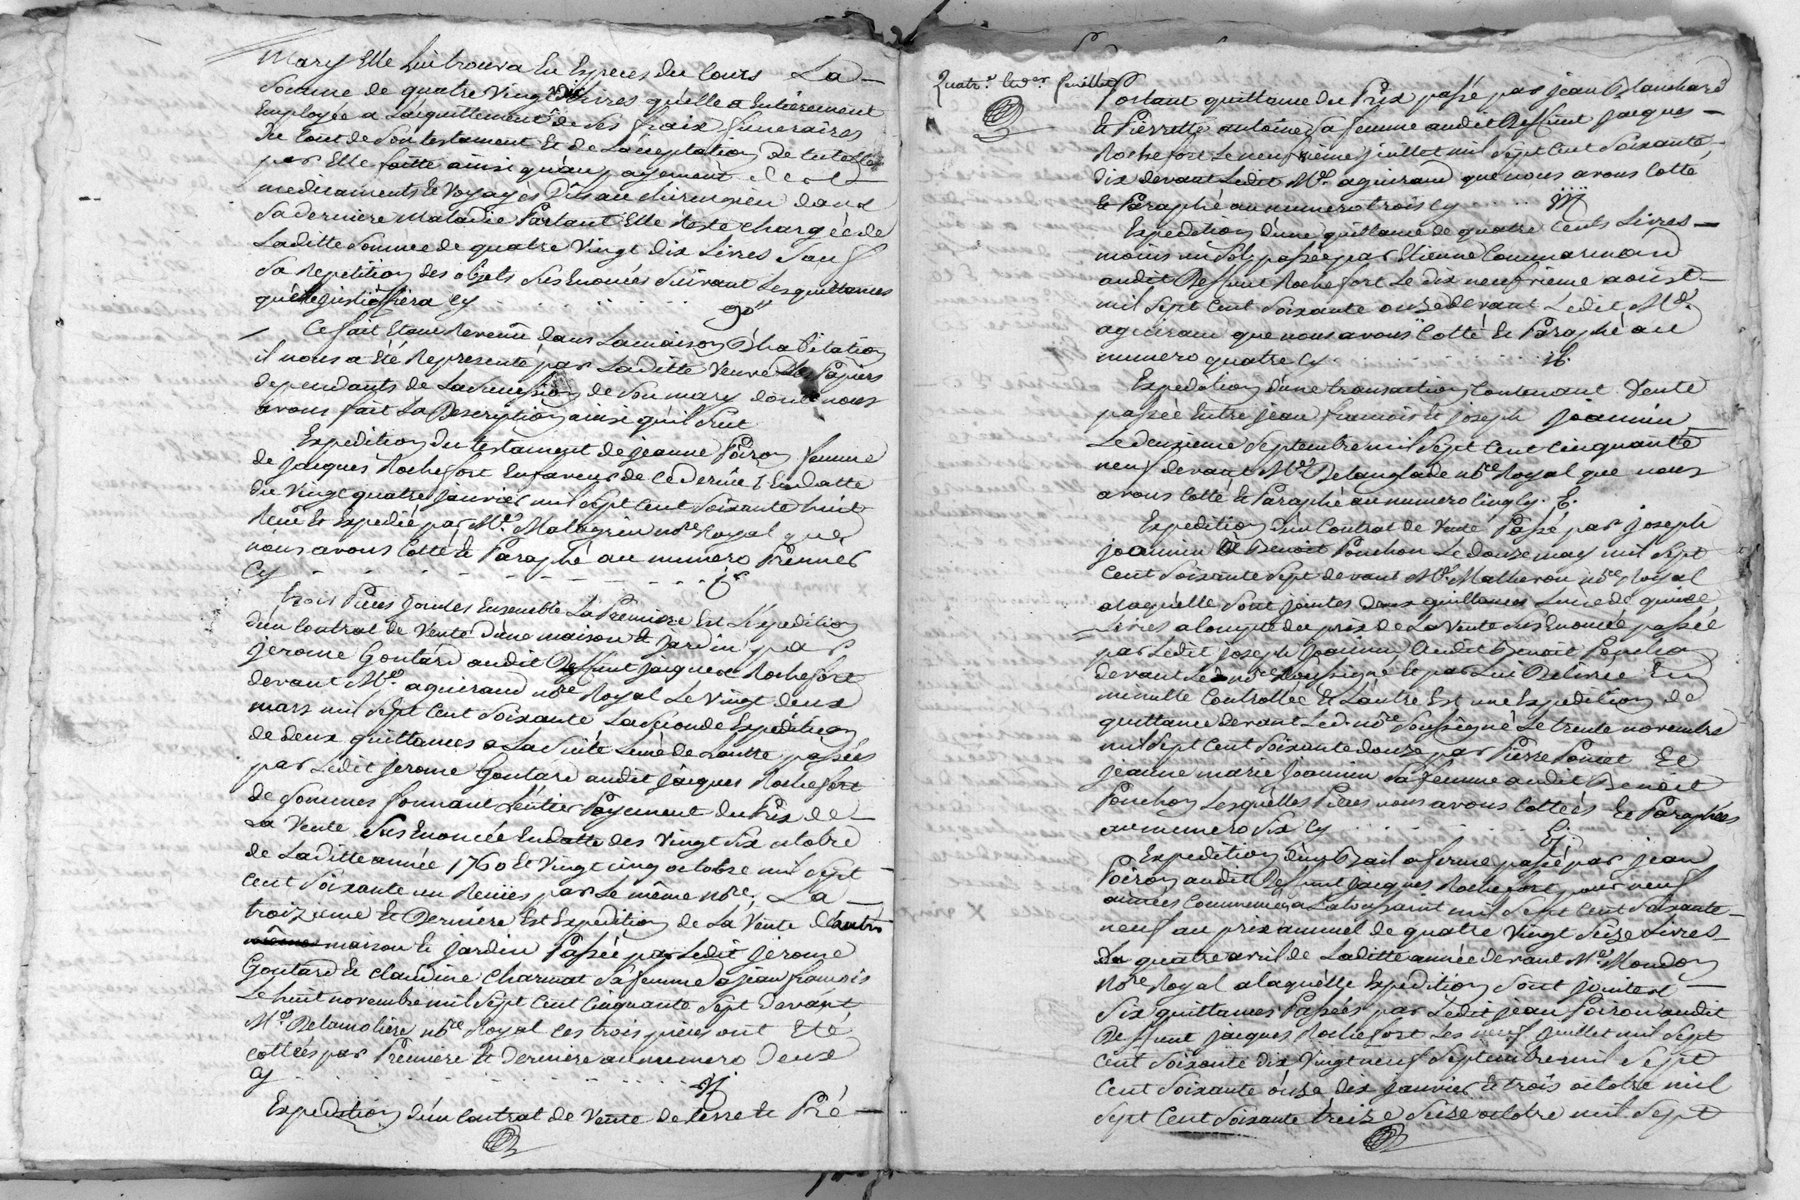 Mary Elle lui trouva En Especes du Cours La
Somme de quatre Vingt dix Livres qu'elle a Entierement
Employée a L'aquittement de ses fraix funeraires
Du Cout de Son testament Et de Lacceptation De tutelle
par Elle faitte ainsi qu'au payement
medicaments Et Voyages Dus au chirurgien dans
Sa derniere maladie Partant Elle Reste chargée de
Laditte Somme de quatre Vingt dix Livres Sauf
Sa Repetition des objets Sus Enoncés Suivant Les quittances
qu'elle justiffiera Cy 90#
Ce fait Etant Revenu dans La maison D'habitation
il nous a été Representé par Laditte Veuve Les Papiers
dependants de La Succession de Son mary dont nous
avons fait La Description ainsi qu'il Suit
Expedition du testament de jeanne Poiron femme
de jacques Rochefort En faveur de Ce Dernier En Datte
du Vingt quatre janvier mil Sept Cent Soixante huit
Recu Et Expedié par Me. Malagrin nore Royal que
nous avons Cotté Et Paraphé au numero Premier
Cy
trois Pieces jointes Ensemble La Premiere Est L'Expedition
d'un Contrat de Vente D'une maison Et jardin par
jerome Goutard audit Deffunt jacques Rochefort
devant Me. aguiraud nore Royal Le Vingt deux
mars mil Sept Cent Soixante La Seconde Expedition
de deux quittances a La Suite L'une de L'autre passées
par Ledit Jerome Goutard audit jacques Rochefort
de Sommes formant L'entier Payement du Prix de
La Vente Sus Enoncée En datte des Vingt Six octobre
de Laditte année 1760 Et Vingt Cinq octobre mil Sept
Cent Soixante un Reçues par Le même nore; La
troizieme Et Derniere Est Expedition de La Vente d'autre
maison Et jardin Passée par Ledit jerome
Goutard Et claudine Charmat Sa femme a jean francois
Le huit novembre mil Sept Cent Cinquante Sept devant
Me. Delamoliere nore Royal Ces trois pieces ont Eté
cottées par Premiere Et derniere au numero Deux
Cy
Expedition d'un Contrat de Vente de terre Et Pré
feuillet
Portant quittance du Prix passé par jean Blanchard
Et Pierrette antoine Sa femme audit Deffunt jacques
Rochefort Le neuf juillet mil Sept Cent Soixante
dix devant Ledit Me. aguiraud que nous avons Cotté
Et Paraphé au numero trois Cy
Expedition d'une quittance de quatre Cents Livres
moins un Sol passée par Etienne Commarmond
audit Deffunt Rochefort Le dix neuvieme aoust
mil Sept Cent Soixante onze devant Ledit Me.
aguiraud que nous avons Cotté Et Paraphé au
numero quatre Cy
Expedition d'une transaction Contenant Vente
passée Entre jean francois Et joseph joannin
Le deuxieme Septembre mil Sept Cent Cinquante
neuf devant Me. Delanglade nore Royal que nous
avons Cotté Et Paraphé au numero Cinq Cy
Expedition d'un Contrat de Vente Passé par joseph
joannin a Benoit Ponchon Le douze may mil Sept
Cent Soixante Sept devant Me. Matheron nore Royal
a laquelle Sont jointes deux quittances L'une de quinze
Livres a Compte du prix de La Vente Sus Enoncée passée
par Ledit joseph joannin audit Benoit Ponchon
devant Le nore Soussigné Et par Lui Delivrée En
minutte Controllée Et L'autre Est une Expedition de
quittance devant Led. nore Soussigné Le trente novembre
mil Sept Cent Soixante douze par Pierre Poncet Et
jeanne marie joannin Sa femme audit Benoit
Ponchon Lesquelles Pieces nous avons Cottées Et Paraphées
au numero Six Cy
Expedition d'un Bail a ferme passé par jean
Poiron audit Deffunt jacques Rochefort pour neuf
années Commencées a La toussaint mil Sept Cent Soixante
neuf au prix annuel de quatre Vingt Seize Livres
Du quatre avril de Laditte année devant Me. Mondon
Nore Royal a laquelle Expedition Sont jointes
Six quittances Passées par Ledit jean Poiron audit
Deffunt jacques Rochefort Les neuf juillet mil Sept
Cent Soixante dix Vingt neuf Septembre mil Sept
Cent Soixante onze dix janvier Et trois octobre mil
Sept Cent Soixante treize Seize octobre mil Sept